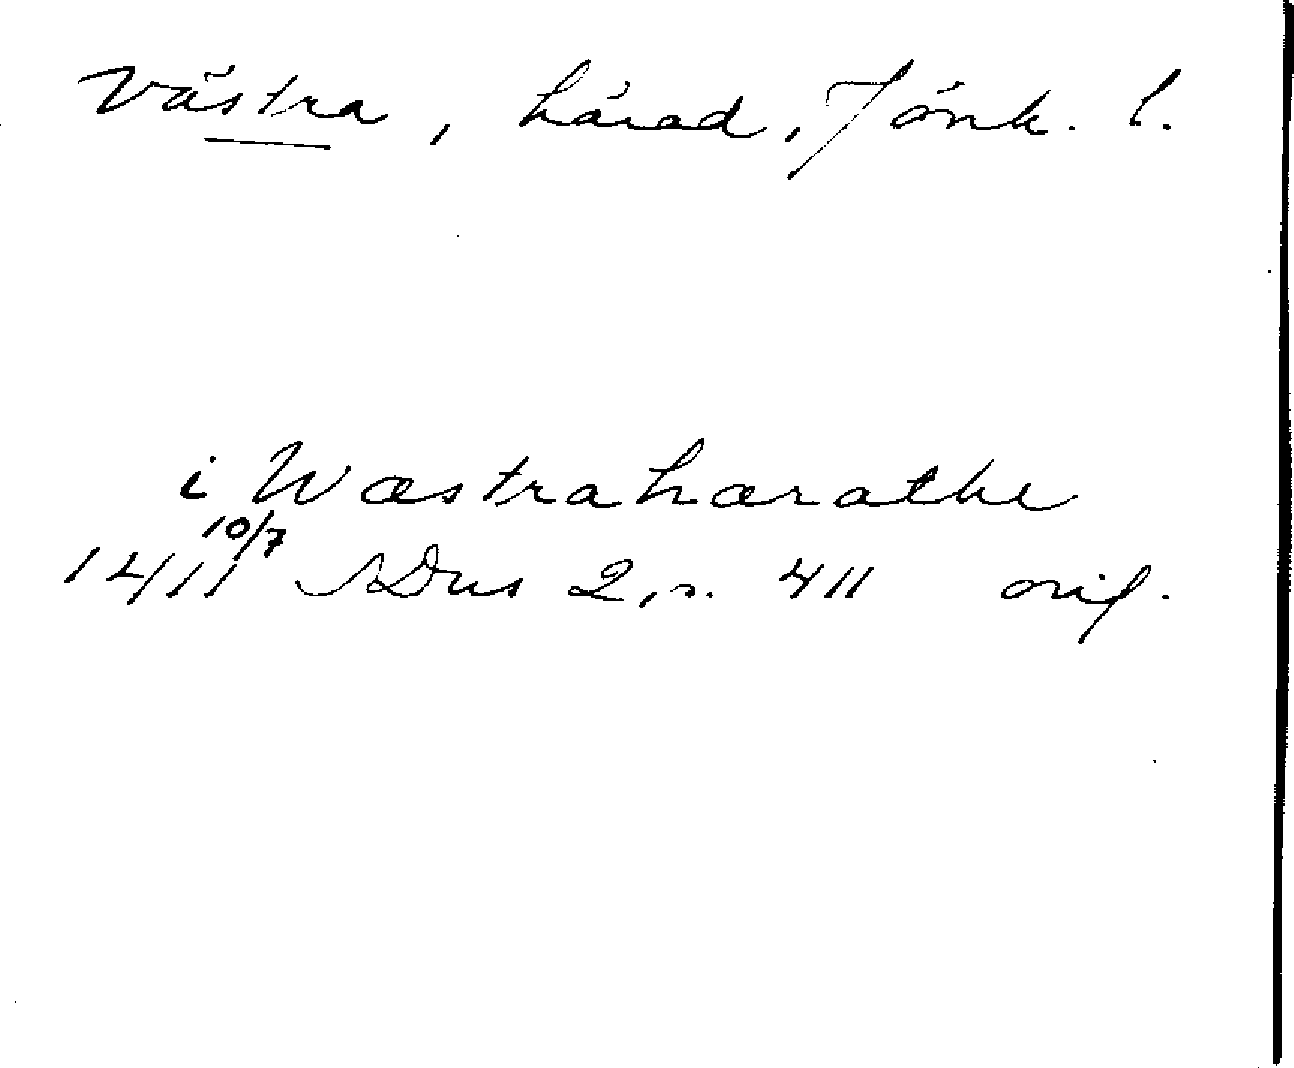 Västra, härad, Jönk. l.
i Wæstrahærathe
1411 10/7 SDns 2, s. 411 orig.